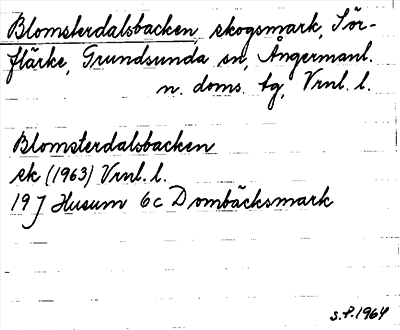 Blomsterdalsbacken, skogsmark, Sör-
flärke, Grundsunda sn, Ångermanl.
n. doms. tg, Vrnl. l.
Blomsterdalsbacken
sk (1963) Vrnl. l.
19 J Husum 6c Dombäcksmark
S.F. 1964